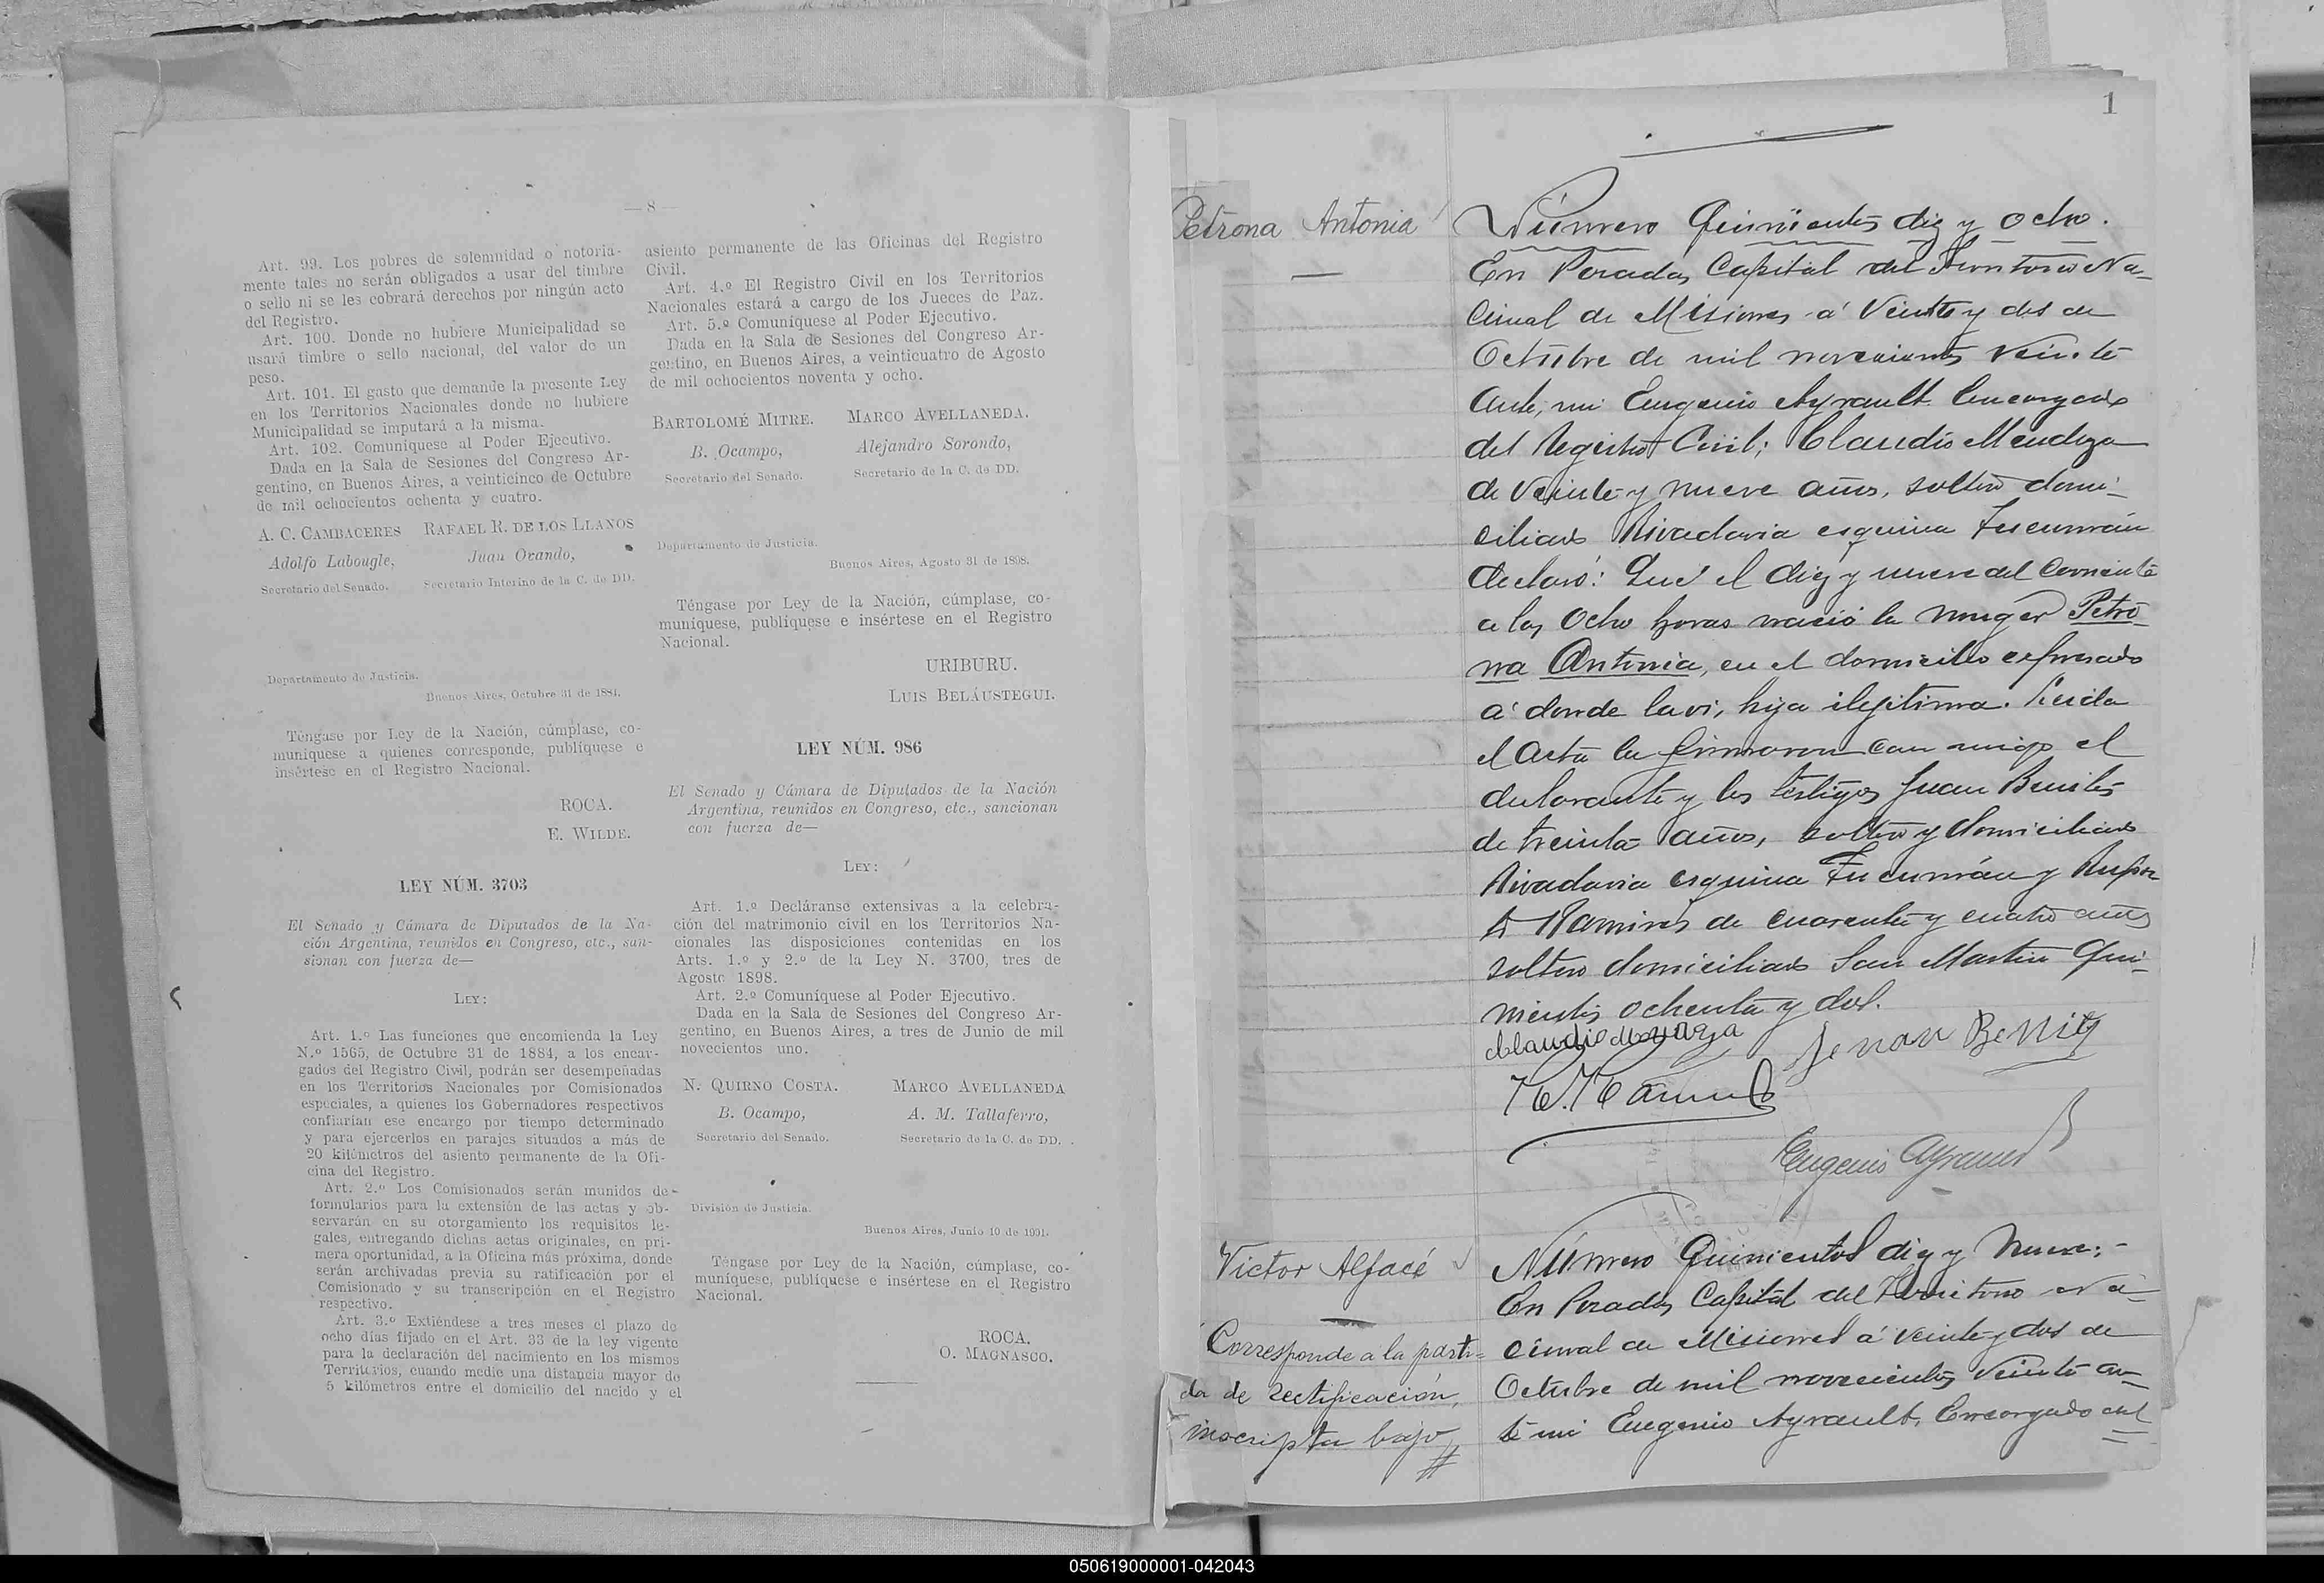 — 8 —
Art. 99. Los pobres de solemnidad o notoria-
mente tales no serán obligados a usar del timbre
o sello ni se les cobrará derechos por ningún acto
del Registro.
Art. 100. Donde no hubiere Municipalidad se
usará timbre o sello nacional, del valor de un
peso.
Art. 101. El gasto que demande la presente Ley
en los Territorios Nacionales donde no hubiere
Municipalidad se imputará a la misma.
Art. 102. Comuníquese al Poder Ejecutivo.
Dada en la Sala de Sesiones del Congreso Ar-
gentino, en Buenos Aires, a veinticinco de Octubre
de mil ochocientos ochenta y cuatro.
A. C. CAMBACERES RAFAEL R. DE LOS LLANOS
Adolfo Labougle, Juan Ovando,
Secretario del Senado. Secretario Interino de la C. de DD.
Departamento de Justicia.
Buenos Aires, Octubre 31 de 1884.
Téngase por Ley de la Nación, cúmplase, co-
muníquese a quienes corresponde, publíquese e
insértese en el Registro Nacional.
ROCA.
E. WILDE.
LEY NÚM. 3703
El Senado y Cámara de Diputados de la Na-
ción Argentina, reunidos en Congreso, etc., san-
sionan con fuerza de—
LEY:
Art. 1.º Las funciones que encomienda la Ley
N.º 1565, de Octubre 31 de 1884, a los encar-
gados del Registro Civil, podrán ser desempeñadas
en los Territorios Nacionales por Comisionados
especiales, a quienes los Gobernadores respectivos
confiarían ese encargo por tiempo determinado
y para ejercerlos en parajes situados a más de
20 kilómetros del asiento permanente de la Ofi-
cina del Registro.
Art. 2.º Los Comisionados serán munidos de
formularios para la extensión de las actas y ob-
servarán en su otorgamiento los requisitos le-
gales, entregando dichas actas originales, en pri-
mera oportunidad, a la Oficina más próxima, donde
serán archivadas previa su ratificación por el
Comisionado y su transcripción en el Registro
respectivo.
Art. 3.º Extiéndese a tres meses el plazo de
ocho días fijado en el Art. 33 de la ley vigente
para la declaración del nacimiento en los mismos
Territorios, cuando medie una distancia mayor de
5 kilómetros entre el domicilio del nacido y el
asiento permanente de las Oficinas del Registro
Civil.
Art. 4.º El Registro Civil en los Territorios
Nacionales estará a cargo de los Jueces de Paz.
Art. 5.º Comuníquese al Poder Ejecutivo.
Dada en la Sala de Sesiones del Congreso Ar-
gentino, en Buenos Aires, a veinticuatro de Agosto
de mil ochocientos noventa y ocho.
BARTOLOMÉ MITRE. MARCO AVELLANEDA.
B. Ocampo, Alejandro Sorondo,
Secretario del Senado. Secretario de la C. de DD.
Departamento de Justicia.
Buenos Aires, Agosto 31 de 1898.
Téngase por Ley de la Nación, cúmplase, co-
muníquese, publíquese e insértese en el Registro
Nacional.
URIBURU.
LUIS BELÁUSTEGUI.
LEY NÚM. 986
El Senado y Cámara de Diputados de la Nación
Argentina, reunidos en Congreso, etc., sancionan
con fuerza de—
LEY:
Art. 1.º Decláranse extensivas a la celebra-
ción del matrimonio civil en los Territorios Na-
cionales las disposiciones contenidas en los
Arts. 1.º y 2.º de la Ley N. 3700, tres de
Agosto 1898.
Art. 2.º Comuníquese al Poder Ejecutivo.
Dada en la Sala de Sesiones del Congreso Ar-
gentino, en Buenos Aires, a tres de Junio de mil
novecientos uno.
N. QUIRNO COSTA. MARCO AVELLANEDA
B. Ocampo, A. M. Tallaferro,
Secretario del Senado. Secretario de la C. de DD.
División de Justicia.
Buenos Aires, Junio 10 de 1901.
Téngase por Ley de la Nación, cúmplase, co-
muníquese, publíquese e insértese en el Registro
Nacional.
ROCA.
O. MAGNASCO.
1
Petrona Antonia
Número Quinientos diez y ocho.
En Posadas, Capital del Territorio Na-
cional de Misiones á Veinte y dos de
Octubre de mil novecientos Veinte
Ante, mi Eugenio Ayrault Encargado
del Registro Civil; Claudio Mendoza
de Veinte y nueve años, soltero domi-
ciliado Rivadavia esquina Tucumán
declaró: Que el diez y nueve del Corriente
a las Ocho horas nació la muger Petro-
na Antonia, en el domicilio expresado
á donde la vi, hija ilegitima. Leida
el Acta la firmaron con migo el
declarante y los testigos Juan Benites
de treinta años, soltero y domiciliado
Rivadavia esquina Tucumán y Ruper-
to Ramires de cuarenta y cuatro años
soltero domiciliado San Martin Qui-
nientos ochenta y dos.
Claudio Mendoza Juan Benits
R. Ramires
Eugenio Ayrault
Victor Alfacé
Corresponde a la parti=
da de rectificación,
inscripta bajo #
Número Quinientos diez y Nueve:-
En Posadas, Capital del Territorio Na-
cional de Misiones á veinte y dos de
Octubre de mil novecientos Veinte an-
te mi Eugenio Ayrault, Encargado del
050619000001-042043